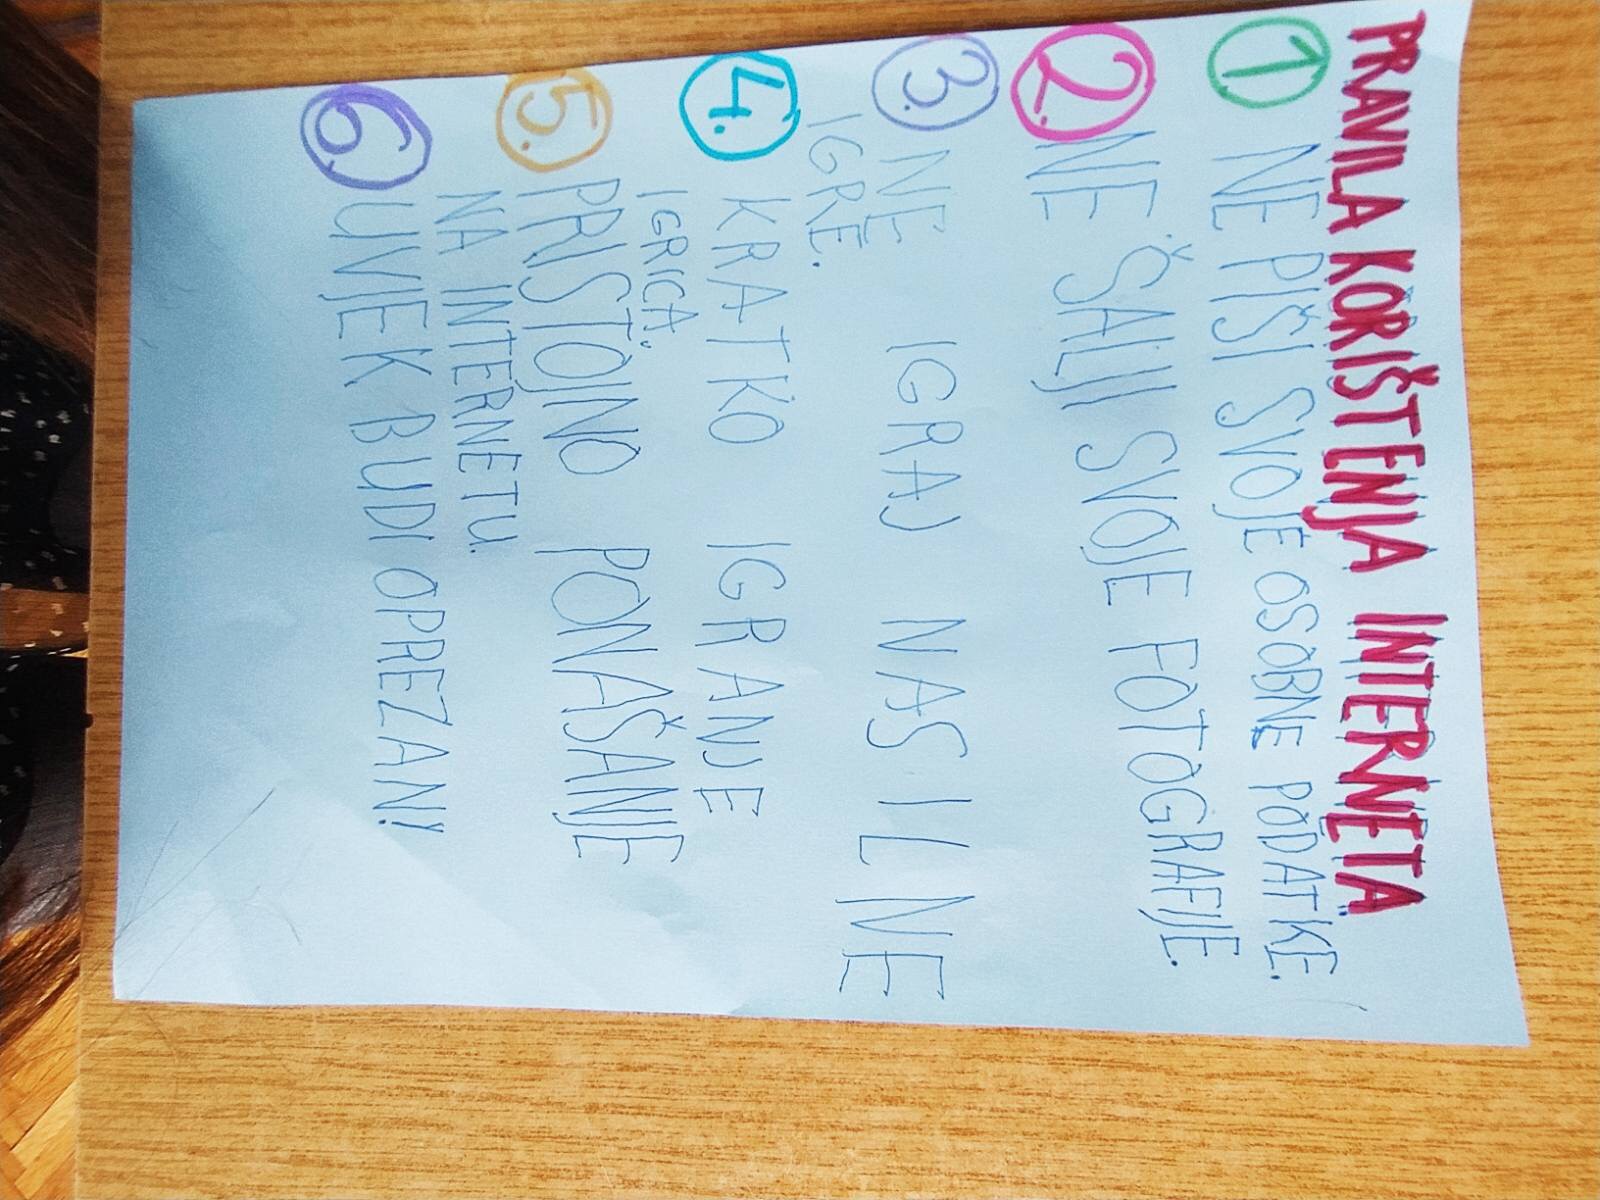 PRAVILA KORIŠTENJA INTERNETA
1 NE PIŠI SVOJE OSOBNE PODATKE.
2. NE ŠALJI SVOJE FOTOGRAFIJE.
3. NE IGRAJ NASILNE
IGRE.
4. KRATKO IGRANJE
IGRICA.
5. PRISTOJNO PONAŠANJE
NA INTERNETU.
6. UVJEK BUDI OPREZAN!